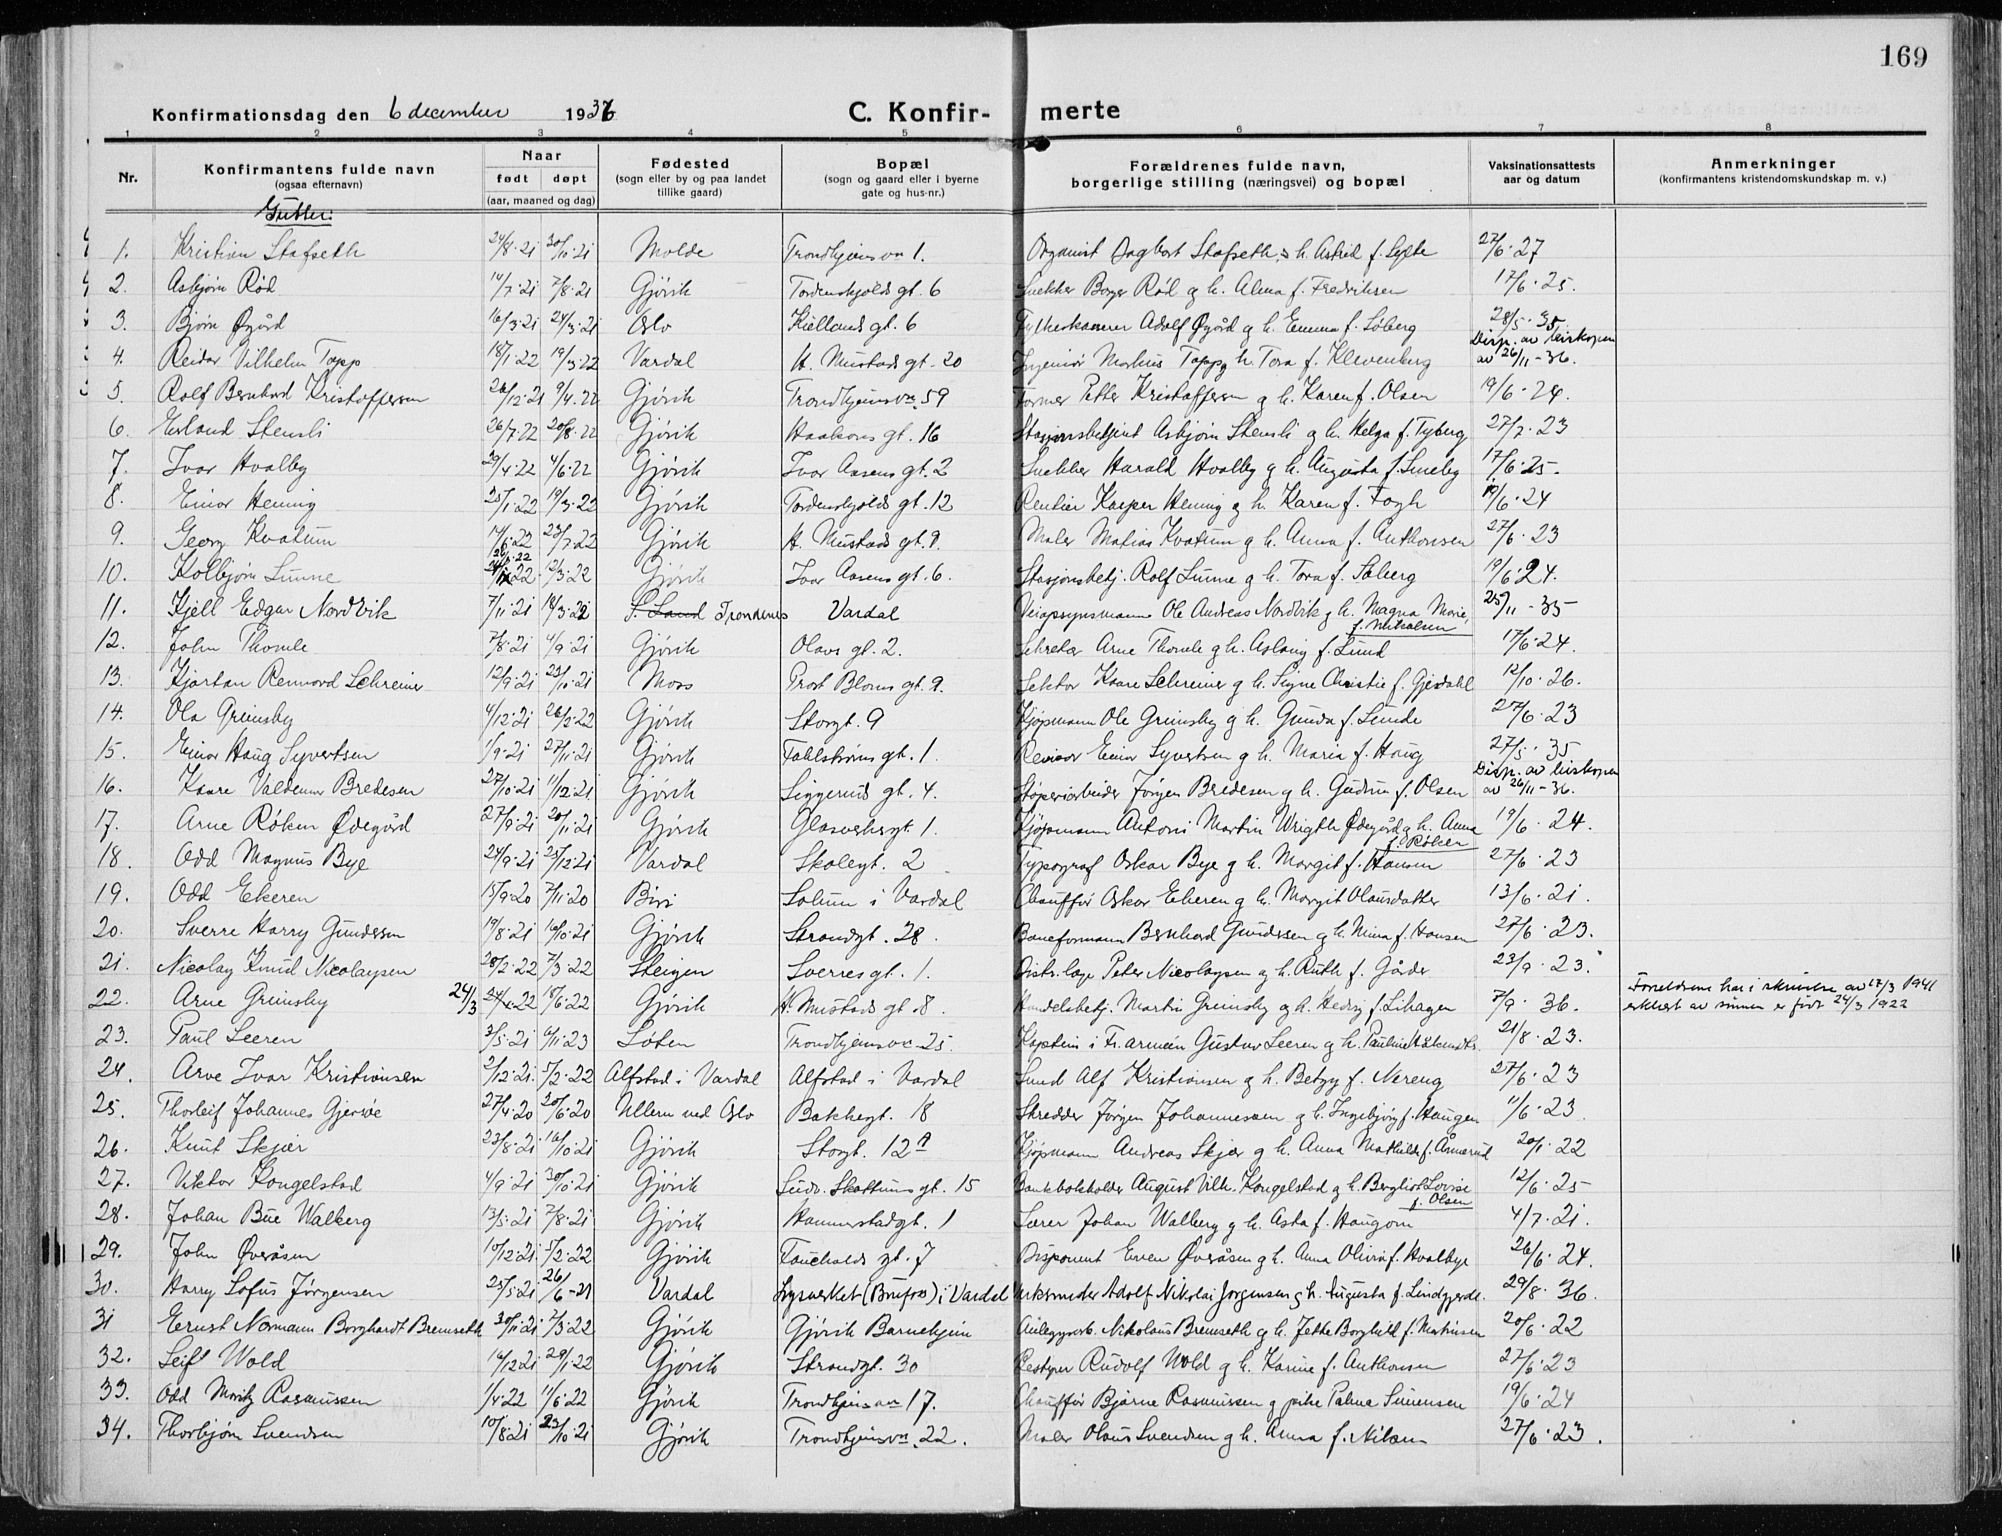 169
Konfirmationsdag den 6 december 1936
C. Konfirmerte
1 2 3 4 5 6 7 8
Nr. Konfirmantens fulde navn (ogsaa efternavn) Naar født døpt (aar, maaned og dag) Fødested (sogn eller by og paa landet tillike gaard) Bopæl (sogn og gaard eller i byerne gate og hus-nr.) Forældrenes fulde navn, borgerlige stilling (næringsvei) og bopæl Vaksinationsattests aar og datum Anmerkninger (konfirmantens kristendomskundskap m. v.)
Gutter:
1. Kristian Stafseth 24/8·21 30/10·21 Molde Trondhjemsvn 1. Organist Dagbert Stafseth, h. Astrid f. 27/6·27
2. Asbjørn Rød 14/7·21 7/8·21 Gjövik Tordenskjolds gt. 6 Snekker Borger Röd og h. Alma f. Fredriksen 17/6·25.
3. Bjørn Øygård 16/3·21 24/3·21 Oslo Kiellands gt. 6 Fylkeskaserer Adolf Øygård og h. Emma f. Söberg 28/5·35
4. Reidar Vilhelm Topp 18/1·22 19/3·22 Vardal H. Mustads gt. 20 Ingeniør Markus Topp og h. Tora f. Klevenberg Disp. av biskopen av 26/11-36.
5. Rolf Bernhard Kristoffersen 26/12·21 9/4·22 Gjövik Trondhjemsvn. 59 Former Petter Kristoffersen og h. Karen f. Olsen 19/6·24.
6. Erland Stensli 26/7·22 20/8·22 Gjövik Haakons gt. 16 Stasjonsbetjent Asbjørn Stensli og h. Helga f. Tyberg 27/7·23
7. Ivar Hvalby 29/4·22 4/6·22 Gjövik Ivar Aasens gt. 2 Snekker Harald Hvalby og h. Augusta f. Smeby 17/6·25.
8. Einar Henning 25/1·22 19/3·22 Gjövik Tordenskjolds gt. 12 Rentier Kasper Henning og h. Karen f. Fogh 19/6·24
9. Georg Kvatum 14/6·22 23/7·22 Gjövik H. Mustads gt. 9. Maler Matias Kvatum og h. Anna f. Anthonsen 27/6·23
10. Kolbjørn Sunne 22 12/3·22 Gjövik Ivar Aasens gt. 6. Stasjonsbetj. Rolf Sunne og h. Tora f. Soberg 19/6·24.
11. Kjell Edgar Nordvik 7/11·21 19/3·22 S. Land Trondenes Vardal Veiopsynsmann Ole Andreas Nordvik og h. Magna Marie, f. Nikolaisen 25/11-35
12. John Thomle 7/8·21 4/9·21 Gjövik Olavs gt. 2. Sekretær Arne Thomle og h. Aslaug f. Lund 17/6·24.
13. Kjartan Rennord Schreiner 12/9·21 23/10·21 Moss Prost Bloms gt. 9. Lektor Kaare Schreiner og h. Signe Christie f. Gjesdahl 12/10·26.
14. Ola Grimsby 4/12·21 26/2·22 Gjövik Storgt. 9 Kjøpmann Ole Grimsby og h. Gunda f. Lunde 27/6·23
15. Einar Haug Syvertsen 1/9·21 27/11·21 Gjövik Fahlstrøms gt. 1. Revisor Einar Syvertsen og h. Maria f. Haug 27/5·35
16. Kaare Valdemar Bredesen 27/10·21 11/12·21 Gjövik Siggeruds gt. 4. Støperiarbeider Jörgen Bredesen og h. Gudrun f. Olsen Disp. av biskopen av 26/11-36.
17. Arne Røken Ødegård 27/9·21 20/11·21 Gjövik Glasverksgt. 1. Kjøpmann Antoni Martin Wrigth Ødegård og h. Anna f. Røken 19/6·24.
18. Odd Magnus Bye 24/9·21 25/12·21 Vardal Skolegt. 2 Typograf Oskar Bye og h. Margit f. Hansen 27/6·23
19. Odd Ekeren 15/9·20 7/11·20 Biri Solum i Vardal Chauffør Oskar Ekeren og h. Margit Olausdatter 13/6·21.
20. Sverre Harry Gundersen 19/8·21 16/10·21 Gjövik Strandgt. 28. Baneformann Bernhard Gundersen og h. Nina f. Hansen 27/6·23.
21. Nicolay Knud Nicolaysen 28/2·22 7/3·22 Steigen Sverres gt. 1. Distr.læge Peter Nicolaysen og h. Ruth f. Gårder 23/9·23.
22. Arne Grimsby 24/3 24/4·22 18/6·22 Gjövik H. Mustads gt. 8. Handelsbetj. Martin Grimsby og h. Hedvig f. Lihagen 7/9·36. Foreldrene har i skrivelse av 17/3 1941 erklært at sønnen er født 24/3 1922
23. Paul Leeren 3/5·21 6/11·23 Löten Trondhjemsvn. 25. Kaptein i Fr.armeén Gustav Leeren og h. Pauline 21/8·23.
24. Arve Ivar Kristiansen 2/12·21. 5/2·22 Alfstad i Vardal Alfstad i Vardal Smed Alf Kristiansen og h. Betzy f. Nereng 27/6·23
25. Thorleif Johannes Gjersöe 27/4·20 20/6·20 Ullern ved Oslo Bakkegt. 18 Skredder Jörgen Johannessen og h. Ingebjörg f. Haugen 11/6·23
26. Knut Skjær 23/8·21 16/10·21 Gjövik Storgt. 12 A Kjøpmann Andreas Skjær og h. Anna Mathilde f. Aamerud 20/1·22
27. Viktor Kongelstad 4/9·21 30/10·21 Gjövik Guds. Skattums gt. 15 Bankbokholder August Vilh. Kongelstad og h. Bergliot Lovise f. Olsen 12/6·25
28. Johan Bue Walberg 13/5·21 7/8·21 Gjövik Hammerstadgt. 1 Lærer Johan Walberg og h. Asta f. Haugom 4/7·21.
29. John Øveråsen 10/12·21 5/2·22 Gjövik Faucholds gt. 7 Disponent Even Øveråsen og h. Anna Olivia f. Hvalbye 26/6·24.
30. Harry Sofus Jørgensen 25/5·21 26/6-21 Vardal Lysverket (Brufoss) i Vardal Urksmeder Adolf Nikolai Jørgensen og h. Augusta f. Lindgjerde. 29/8·36.
31 Ernst Normann Borghardt Bremseth 30/11·21 7/5·22 Gjövik Gjövik Barnehjem Anleggsarb. Nikolaus Bremseth og h. Jette Borghild f. Martinsen 20/6·22
32. Leif Wold 16/12·21 29/1·22 Gjövik Strandgt. 30 Bestyrer Rudolf Wold og h. Karine f. Anthonsen 27/6·23
33. Odd Moritz Rasmussen 1/4·22 11/6·22 Gjövik Trondhjemsvn 17. Chauffør Bjarne Rasmussen og pike Palma Simensen 19/6·24
34. Thorbjørn Svendsen 10/8·21 23/10·21 Gjövik Trondhjemsvn. 22. Maler Olaus Svendsen og h. Anna f. Nilsen 27/6·23.